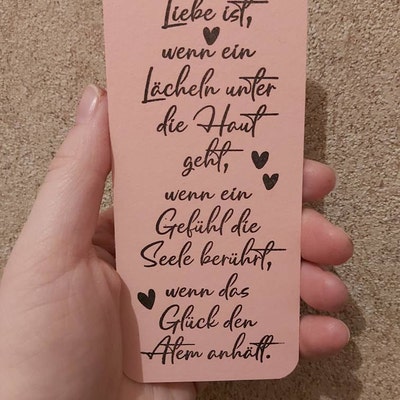 Liebe ist,
wenn ein
Lächeln unter
die Haut
geht,
wenn ein
Gefühl die
Seele berührt,
wenn das
Glück den
Atem anhält.